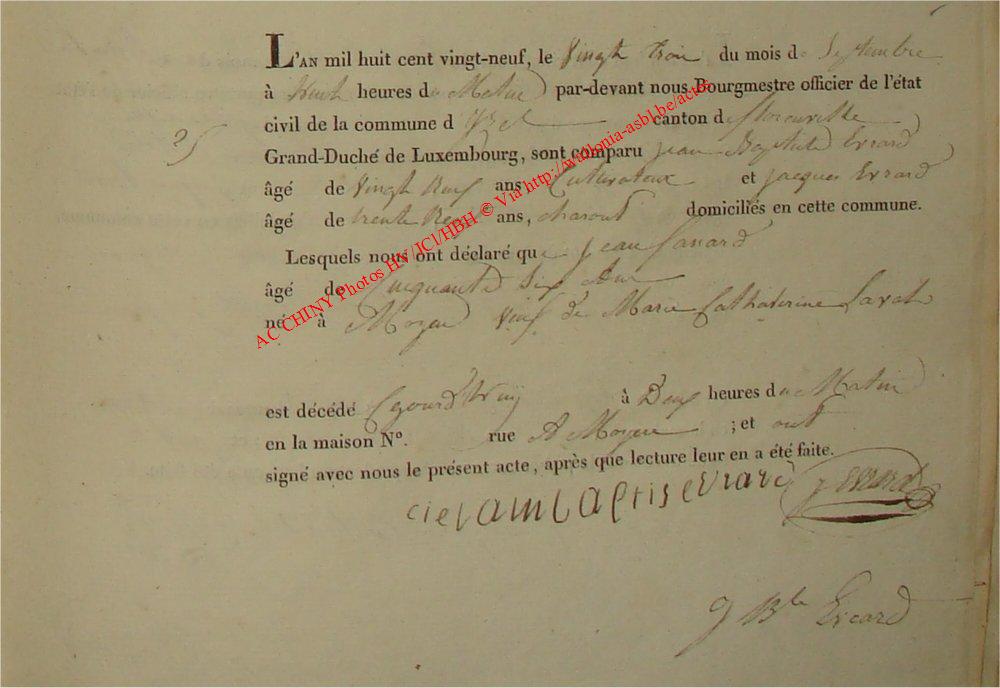 L'AN mil huit cent vingt-neuf, le Vingt trois du mois de Septembre
à huit heures du Matin par-devant nous Bourgmestre officier de l'état
civil de la commune d' Izel canton de florenville
25
Grand-Duché de Luxembourg, sont comparu jean Baptiste Evrard
âgé de Vingt Neuf ans Cultivateur et jacques Evrard
âgé de trente Neuf ans, charon domiciliés en cette commune.
Lesquels nous ont déclaré que jean
âgé de Cinquante Six Ans
né à Moyen Veuf de Marie Catherine
est décédé à Deux heures du Matin
en la maison N°. rue A Moyen ; et ont
signé avec nous le présent acte, après que lecture leur en a été faite.
j evrard
J Bte Evrard
AC CHINY Photos HV/JCl/HBH © Via http://wallonia-asbl.be/actes